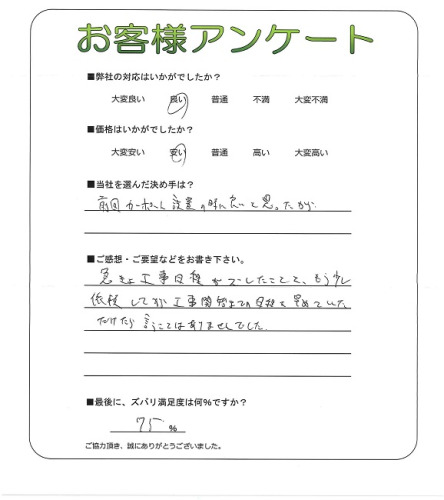 お客様アンケート
■弊社の対応はいかがでしたか?
大変良い 良い 普通 不満 大変不満
■価格はいかがでしたか?
大変安い 安い 普通 高い 大変高い
■当社を選んだ決め手は?
前回カーポート設置の時に良いと思ったから
■ご感想・ご要望などをお書き下さい。
急きょ工事日程が したことで、もう少し
してから工事開始までの日程を 決めていた
だけたら言うことはありませんでした。
■最後に、ズバリ満足度は何%ですか?
75 %
ご協力頂き、誠にありがとうございました。